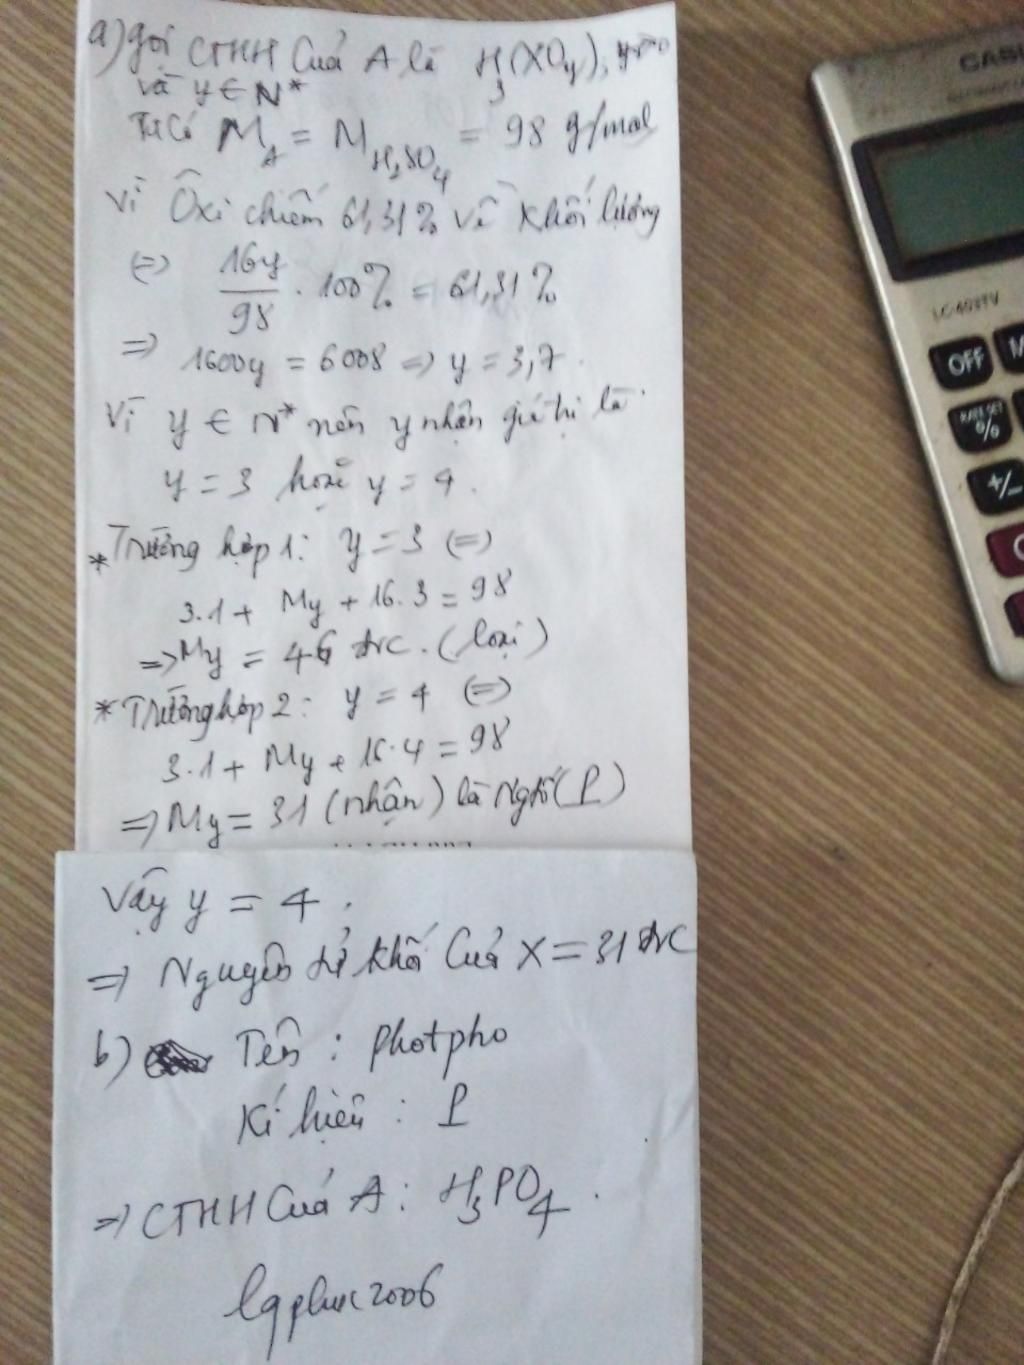 a) gọi CTHH Của A là H3(XOy), y>0
và y ∈ N*
Ta Có MA = MH2SO4 = 98 g/mol
Vì Ôxi chiếm 61,31% về khối lượng
(=) 16y/98 . 100% = 61,31%
=> 1600y = 6008 => y = 3,7.
Vì y ∈ N* nên y nhận giá trị là
y = 3 hoặc y = 4.
* Trường hợp 1: y = 3 (=)
3.1 + My + 16.3 = 98
=> My = 46 đvC. (loại)
* Trường hợp 2: y = 4 (=)
3.1 + My + 16.4 = 98
=> My = 31 (nhận) là Ngtố (P)
Vậy y = 4.
=> Nguyên tử khối Của X = 31 đvC
b) Tên: photpho
Kí hiệu: P
=> CTHH Của A: H3PO4.
lqphuc2006
CAS
LC-403TV
OFF
M
RATE SET
%
+/-
C